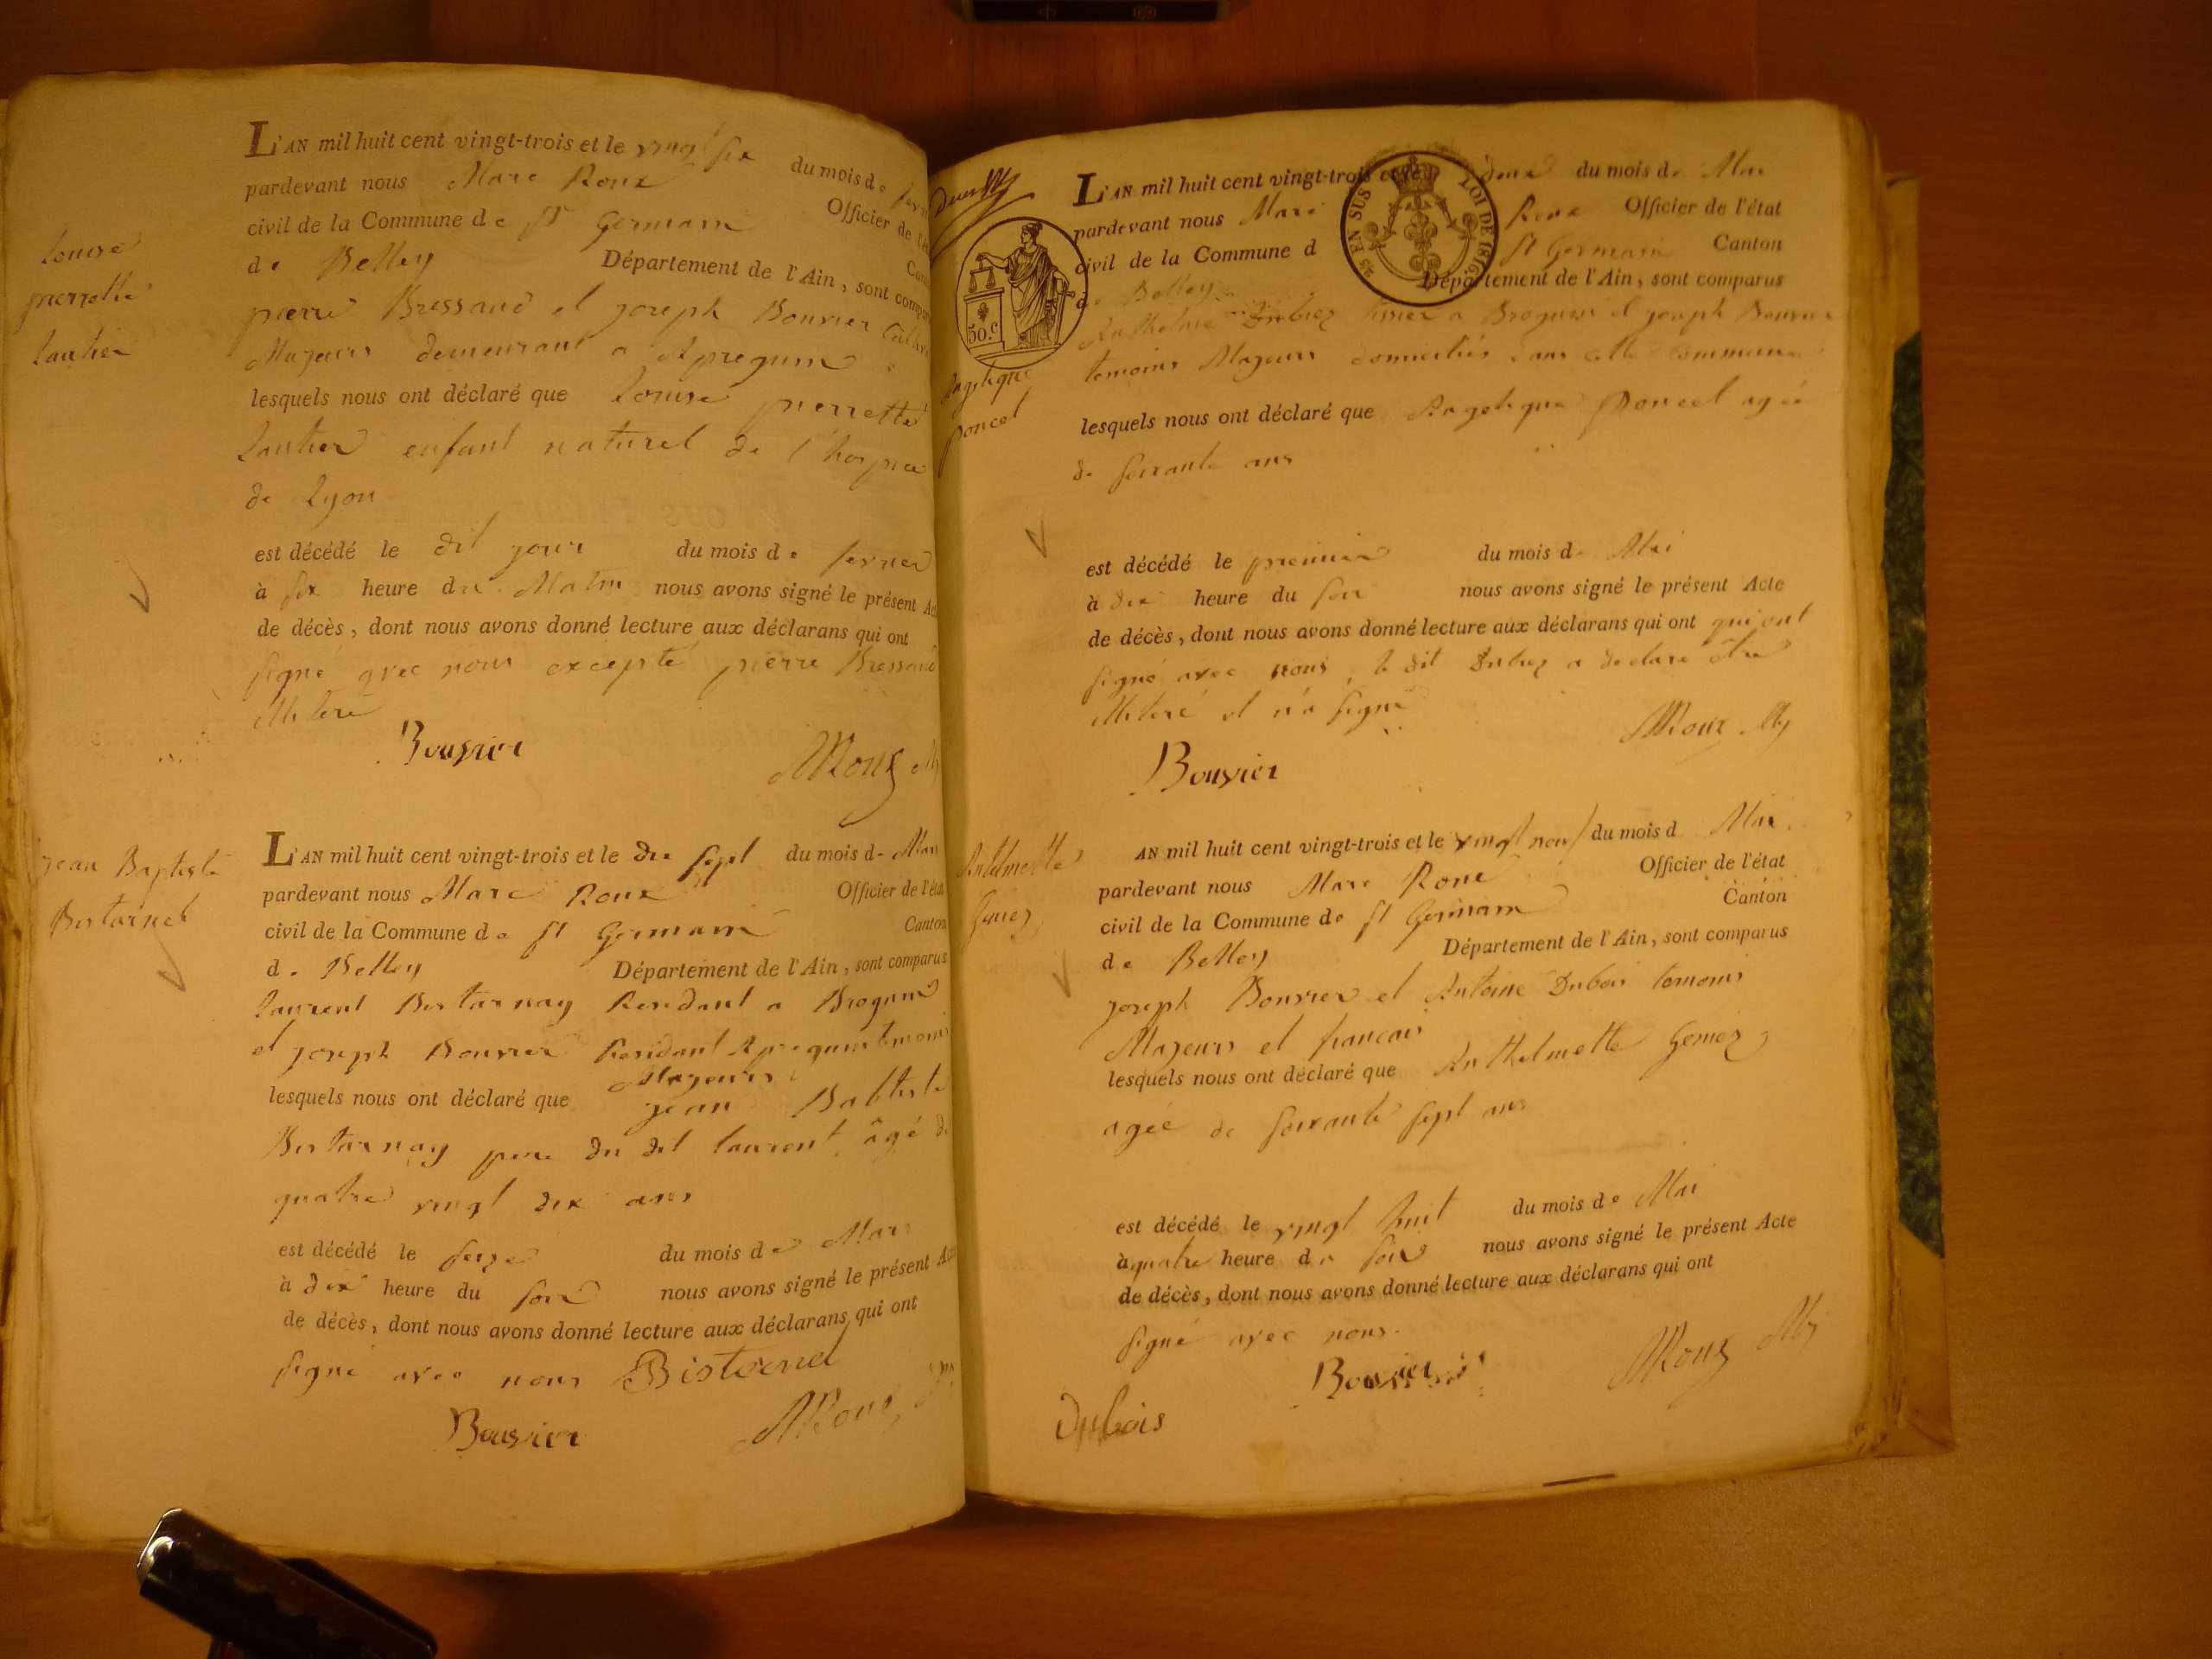 L'AN mil huit cent vingt-trois et le vingt six du mois de fevri
pardevant nous Marc Roux Officier de l'é
civil de la Commune de St Germain Can
de Belley Département de l'Ain, sont compar
pierre Bressand et joseph Bouvier
Majeurs demeurant a
lesquels nous ont déclaré que Louise pierrette
Lautier enfant naturel de l'hospice
de Lyon
est décédé le dit jour du mois de fevrier
à six heure du Matin nous avons signé le présent Act
de décès, dont nous avons donné lecture aux déclarans qui ont
signé avec nous excepté pierre Bressand
illiteré
Bouvier MRoux My
Louise
pierrette
Lautier
L'AN mil huit cent vingt-trois et le dix sept du mois de Mars
pardevant nous Marc Roux Officier de l'état
civil de la Commune de St Germain Canton
de Belley Département de l'Ain, sont comparus
laurent Bistarnay Residant a Brognin
et joseph Bouvier Residant temoins
Majeurs
lesquels nous ont déclaré que jean Babtiste
Bistarnay pere du dit laurent, âgé de
quatre vingt dix ans
est décédé le seize du mois de Mars
à dix heure du soir nous avons signé le présent Acte
de décès, dont nous avons donné lecture aux déclarans qui ont
signé avec nous Bisterned
Bouvier MRoux
jean Baptiste
Bistarneh
L'AN mil huit cent vingt-trois et le deux du mois de Mai
pardevant nous Marc Roux Officier de l'état
civil de la Commune d St Germain Canton
de Belley Département de l'Ain, sont comparus
Anthelme Dubiez a Brognin et joseph Bouvier
temoins Majeurs domiciliés dans cette commune
lesquels nous ont déclaré que Angelique Poncet agée
de soixante ans
est décédé le premier du mois de Mai
à dix heure du soir nous avons signé le présent Acte
de décès, dont nous avons donné lecture aux déclarans qui ont qui ont
signé avec nous, le dit Dubiez a declaré être
illiteré et n'a signé
MRoux My
Bouvier
25 EN SUS
LOI DE 1816.
50.c
Angelique
poncet
AN mil huit cent vingt-trois et le vingt neuf du mois d Mai
pardevant nous Marc Roux Officier de l'état
civil de la Commune de St Germain Canton
de Belley Département de l'Ain, sont comparus
joseph Bouvier et Antoine Dubois temoins
Majeurs et francais
lesquels nous ont déclaré que Anthelmette Gemez
agée de soixante sept ans
est décédé le vingt huit du mois de Mai
à quatre heure du soir nous avons signé le présent Acte
de décès, dont nous avons donné lecture aux déclarans qui ont
signé avec nous.
Bouvier MRoux My
Dubois
Antelmette